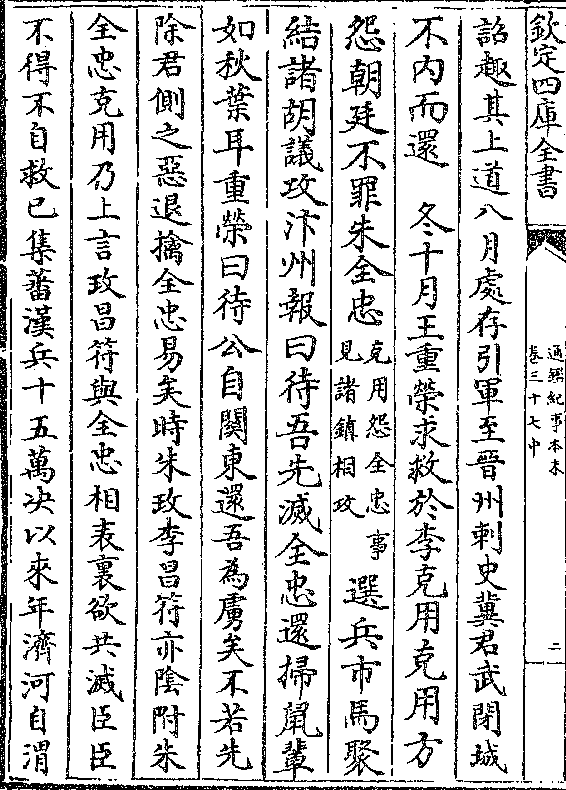 欽定四庫全書
通鑑紀事本末
卷三十七中
二
詔趣其上道八月處存引軍至晉州刺史冀君武閉城
不內而還　冬十月王重榮求救於李克用克用方
怨朝廷不罪朱全忠克用怨全忠事見諸鎮相攻選兵市馬聚
結諸胡議攻汴州報曰待吾先滅全忠還掃鼠輩
如秋葉耳重榮曰待公自關東還吾為虜矣不若先
除君側之惡退擒全忠易矣時朱玫李昌符亦陰附朱
全忠克用乃上言玫昌符與全忠相表裏欲共滅臣臣
不得不自救已集蕃漢兵十五萬决以來年濟河自渭